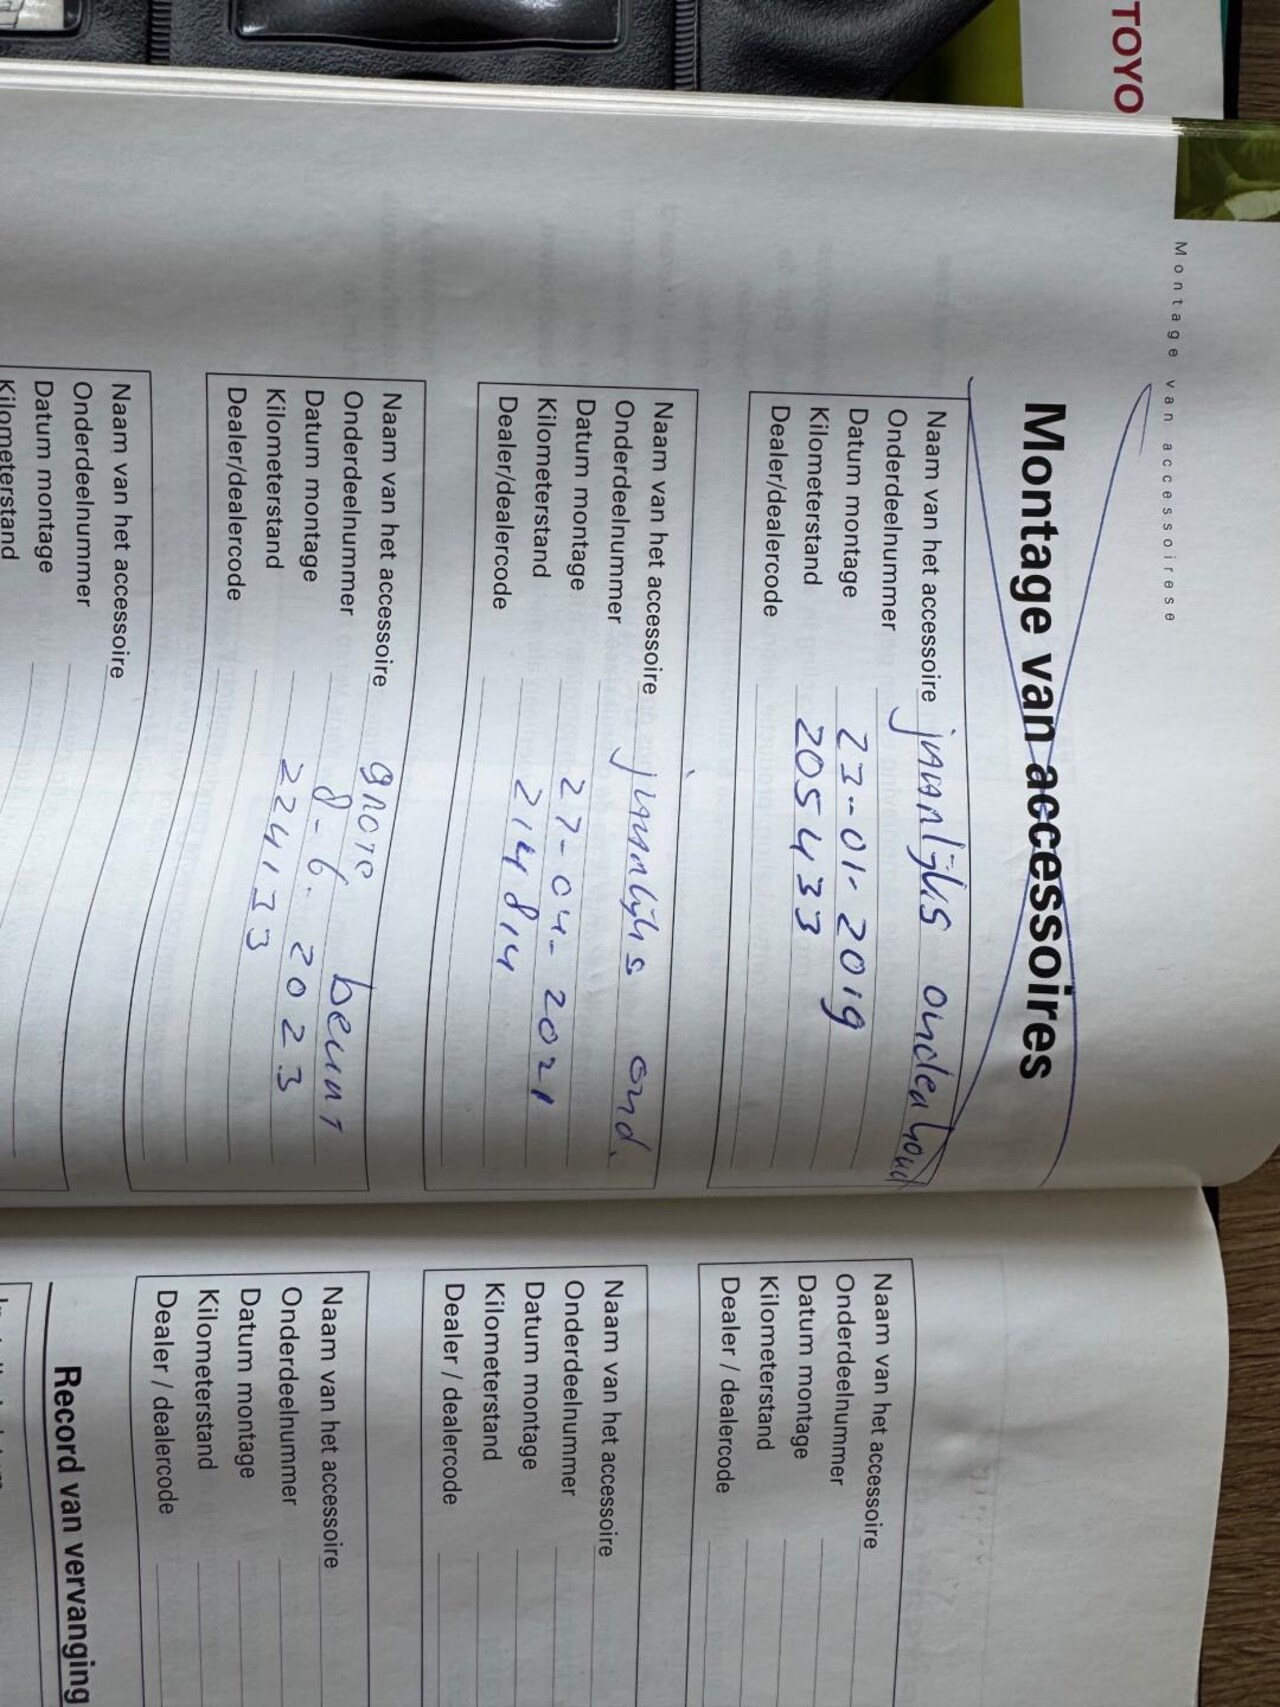 TOYO
Montage van accessoirese
Montage van accessoires
Naam van het accessoire jaarlijks onderhoud
Onderdeelnummer
Datum montage 23-01-2019
Kilometerstand 205433
Dealer/dealercode
Naam van het accessoire
Onderdeelnummer jaarlijks ond.
Datum montage 27-04-2021
Kilometerstand 214814
Dealer/dealercode
Naam van het accessoire grote beurt
Onderdeelnummer
Datum montage 8-6-2023
Kilometerstand 224133
Dealer/dealercode
Naam van het accessoire
Onderdeelnummer
Datum montage
Kilometerstand
Naam van het accessoire
Onderdeelnummer
Datum montage
Kilometerstand
Dealer / dealercode
Naam van het accessoire
Onderdeelnummer
Datum montage
Kilometerstand
Dealer / dealercode
Naam van het accessoire
Onderdeelnummer
Datum montage
Kilometerstand
Dealer / dealercode
Record van vervanging